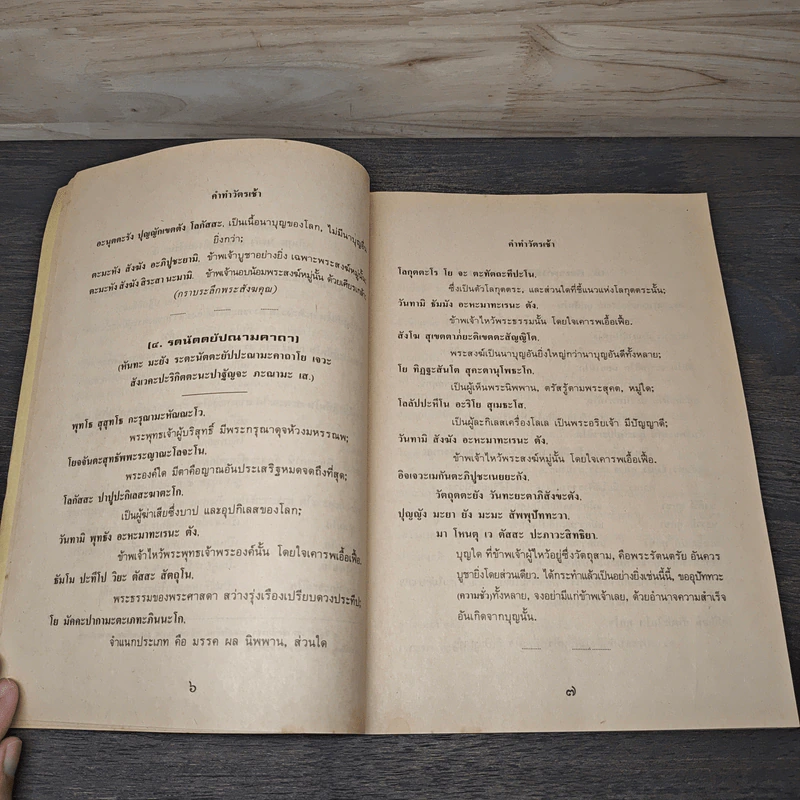 คำทำวัตรเช้า
อะนุตตะรัง ปุญญักเขตตัง โลกัสสะ. เป็นเนื้อนาบุญของโลก, ไม่มีนาบุญอื่น
ยิ่งกว่า;
ตะมะหัง สังฆัง อะภิปูชะยามิ. ข้าพเจ้าบูชาอย่างยิ่ง เฉพาะพระสงฆ์หมู่นั้น,
ตะมะหัง สังฆัง สิระสา นะมามิ. ข้าพเจ้านอบน้อมพระสงฆ์หมู่นั้น ด้วยเศียรเกล้า
(กราบระลึกพระสังฆคุณ)
(๔. รตนัตตยัปณามคาถา)
(หันทะ มะยัง ระตะนัตตะยัปปะณามะคาถาโย เจวะ
สังเวคะปะริกิตตะนะปาฐัญจะ ภะณามะ เส.)
พุทโธ สุสุทโธ กะรุณามะหัณณะโว.
พระพุทธเจ้าผู้บริสุทธิ์ มีพระกรุณาดุจห้วงมหรรณพ;
โยจจันตะสุทธัพพะระญาณะโลจะโน.
พระองค์ใด มีตาคือญาณอันประเสริฐหมดจดถึงที่สุด;
โลกัสสะ ปาปูปะกิเลสะฆาตะโก.
เป็นผู้ฆ่าเสียซึ่งบาป และอุปกิเลสของโลก;
วันทามิ พุทธัง อะหะมาทะเรนะ ตัง.
ข้าพเจ้าไหว้พระพุทธเจ้าพระองค์นั้น โดยใจเคารพเอื้อเฟื้อ.
ธัมโม ปะทีโป วิยะ ตัสสะ สัตถุโน.
พระธรรมของพระศาสดา สว่างรุ่งเรืองเปรียบดวงประทีป;
โย มัคคะปากามะตะเภทะภินนะโก.
จำแนกประเภท คือ มรรค ผล นิพพาน, ส่วนใด
๖
คำทำวัตรเช้า
โลกุตตะโร โย จะ ตะทัตถะทีปะโน.
ซึ่งเป็นตัวโลกุตตระ, และส่วนใดที่ชี้แนวแห่งโลกุตตระนั้น;
วันทามิ ธัมมัง อะหะมาทะเรนะ ตัง.
ข้าพเจ้าไหว้พระธรรมนั้น โดยใจเคารพเอื้อเฟื้อ.
สังโฆ สุเขตตาภ๎ยะติเขตตะสัญญิโต.
พระสงฆ์เป็นนาบุญอันยิ่งใหญ่กว่านาบุญอันดีทั้งหลาย;
โย ทิฏฐะสันโต สุคะตานุโพธะโก.
เป็นผู้เห็นพระนิพพาน, ตรัสรู้ตามพระสุคต, หมู่ใด;
โลลัปปะหีโน อะริโย สุเมธะโส.
เป็นผู้ละกิเลสเครื่องโลเล เป็นพระอริยเจ้า มีปัญญาดี;
วันทามิ สังฆัง อะหะมาทะเรนะ ตัง.
ข้าพเจ้าไหว้พระสงฆ์หมู่นั้น โดยใจเคารพเอื้อเฟื้อ.
อิจเจวะเมกันตะภิปูชะเนยยะกัง.
วัตถุตตะยัง วันทะยะตาภิสังขะตัง.
ปุญญัง มะยา ยัง มะมะ สัพพุปัททะวา.
มา โหนตุ เว ตัสสะ ปะภาวะสิทธิยา.
บุญใด ที่ข้าพเจ้าผู้ไหว้อยู่ซึ่งวัตถุสาม, คือพระรัตนตรัย อันควร
บูชายิ่งโดยส่วนเดียว, ได้กระทำแล้วเป็นอย่างยิ่งเช่นนี้นี้, ขออุปัททวะ
(ความชั่ว)ทั้งหลาย, จงอย่ามีแก่ข้าพเจ้าเลย, ด้วยอำนาจความสำเร็จ
อันเกิดจากบุญนั้น.
๗